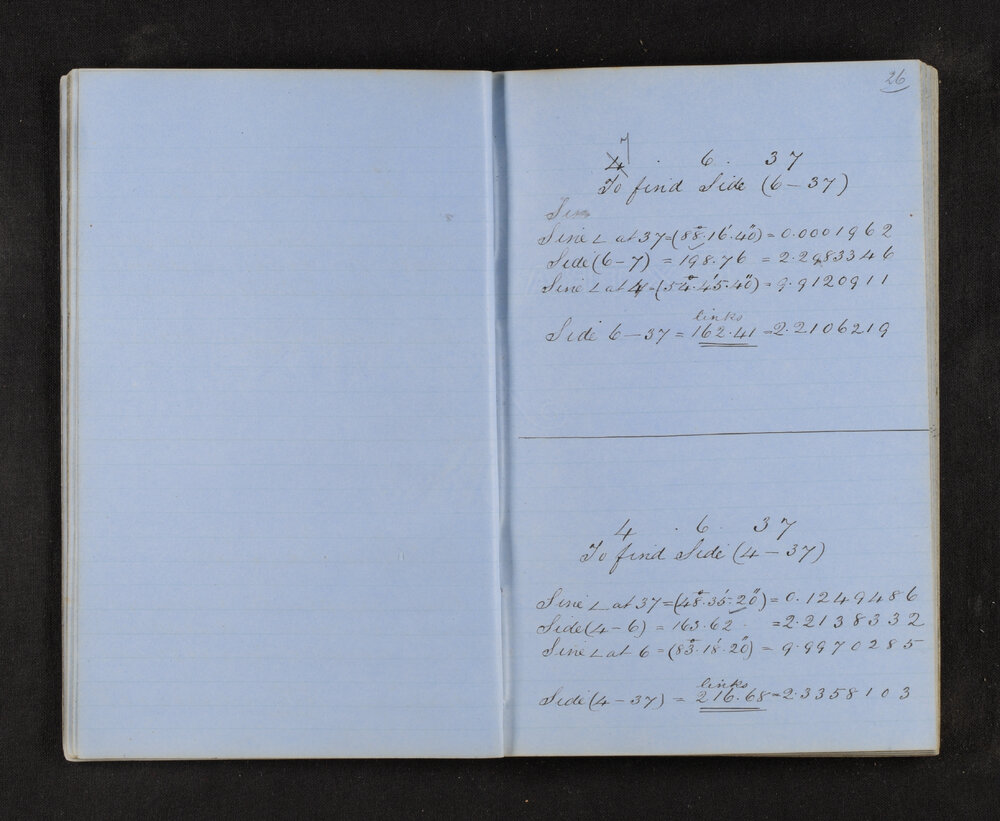 26
7
4 . 6 . 37
To find Side (6 — 37)
Sine
Sine ∠ at 37 = (88°.16'.40") = 0.0001962
Side (6 — 7) = 198.76 = 2.2983346
Sine ∠ at 4 = (54°.45'.40") = 9.9120911
links
Side 6 — 37 = 162.41 = 2.2106219
4 . 6 . 37
To find Side (4 — 37)
Sine ∠ at 37 = (48°.35'.20") = 0.1249486
Side (4 — 6) = 163.62 = 2.2138332
Sine ∠ at 6 = (83°.18'.20") = 9.9970285
links
Side (4 — 37) = 216.68 = 2.3358103